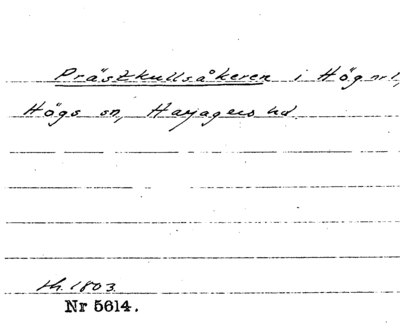 Prästkullsåkeren i Hög nr 1,
Högs sn, Harjagers hd.
sh. 1803.
Nr 5614.